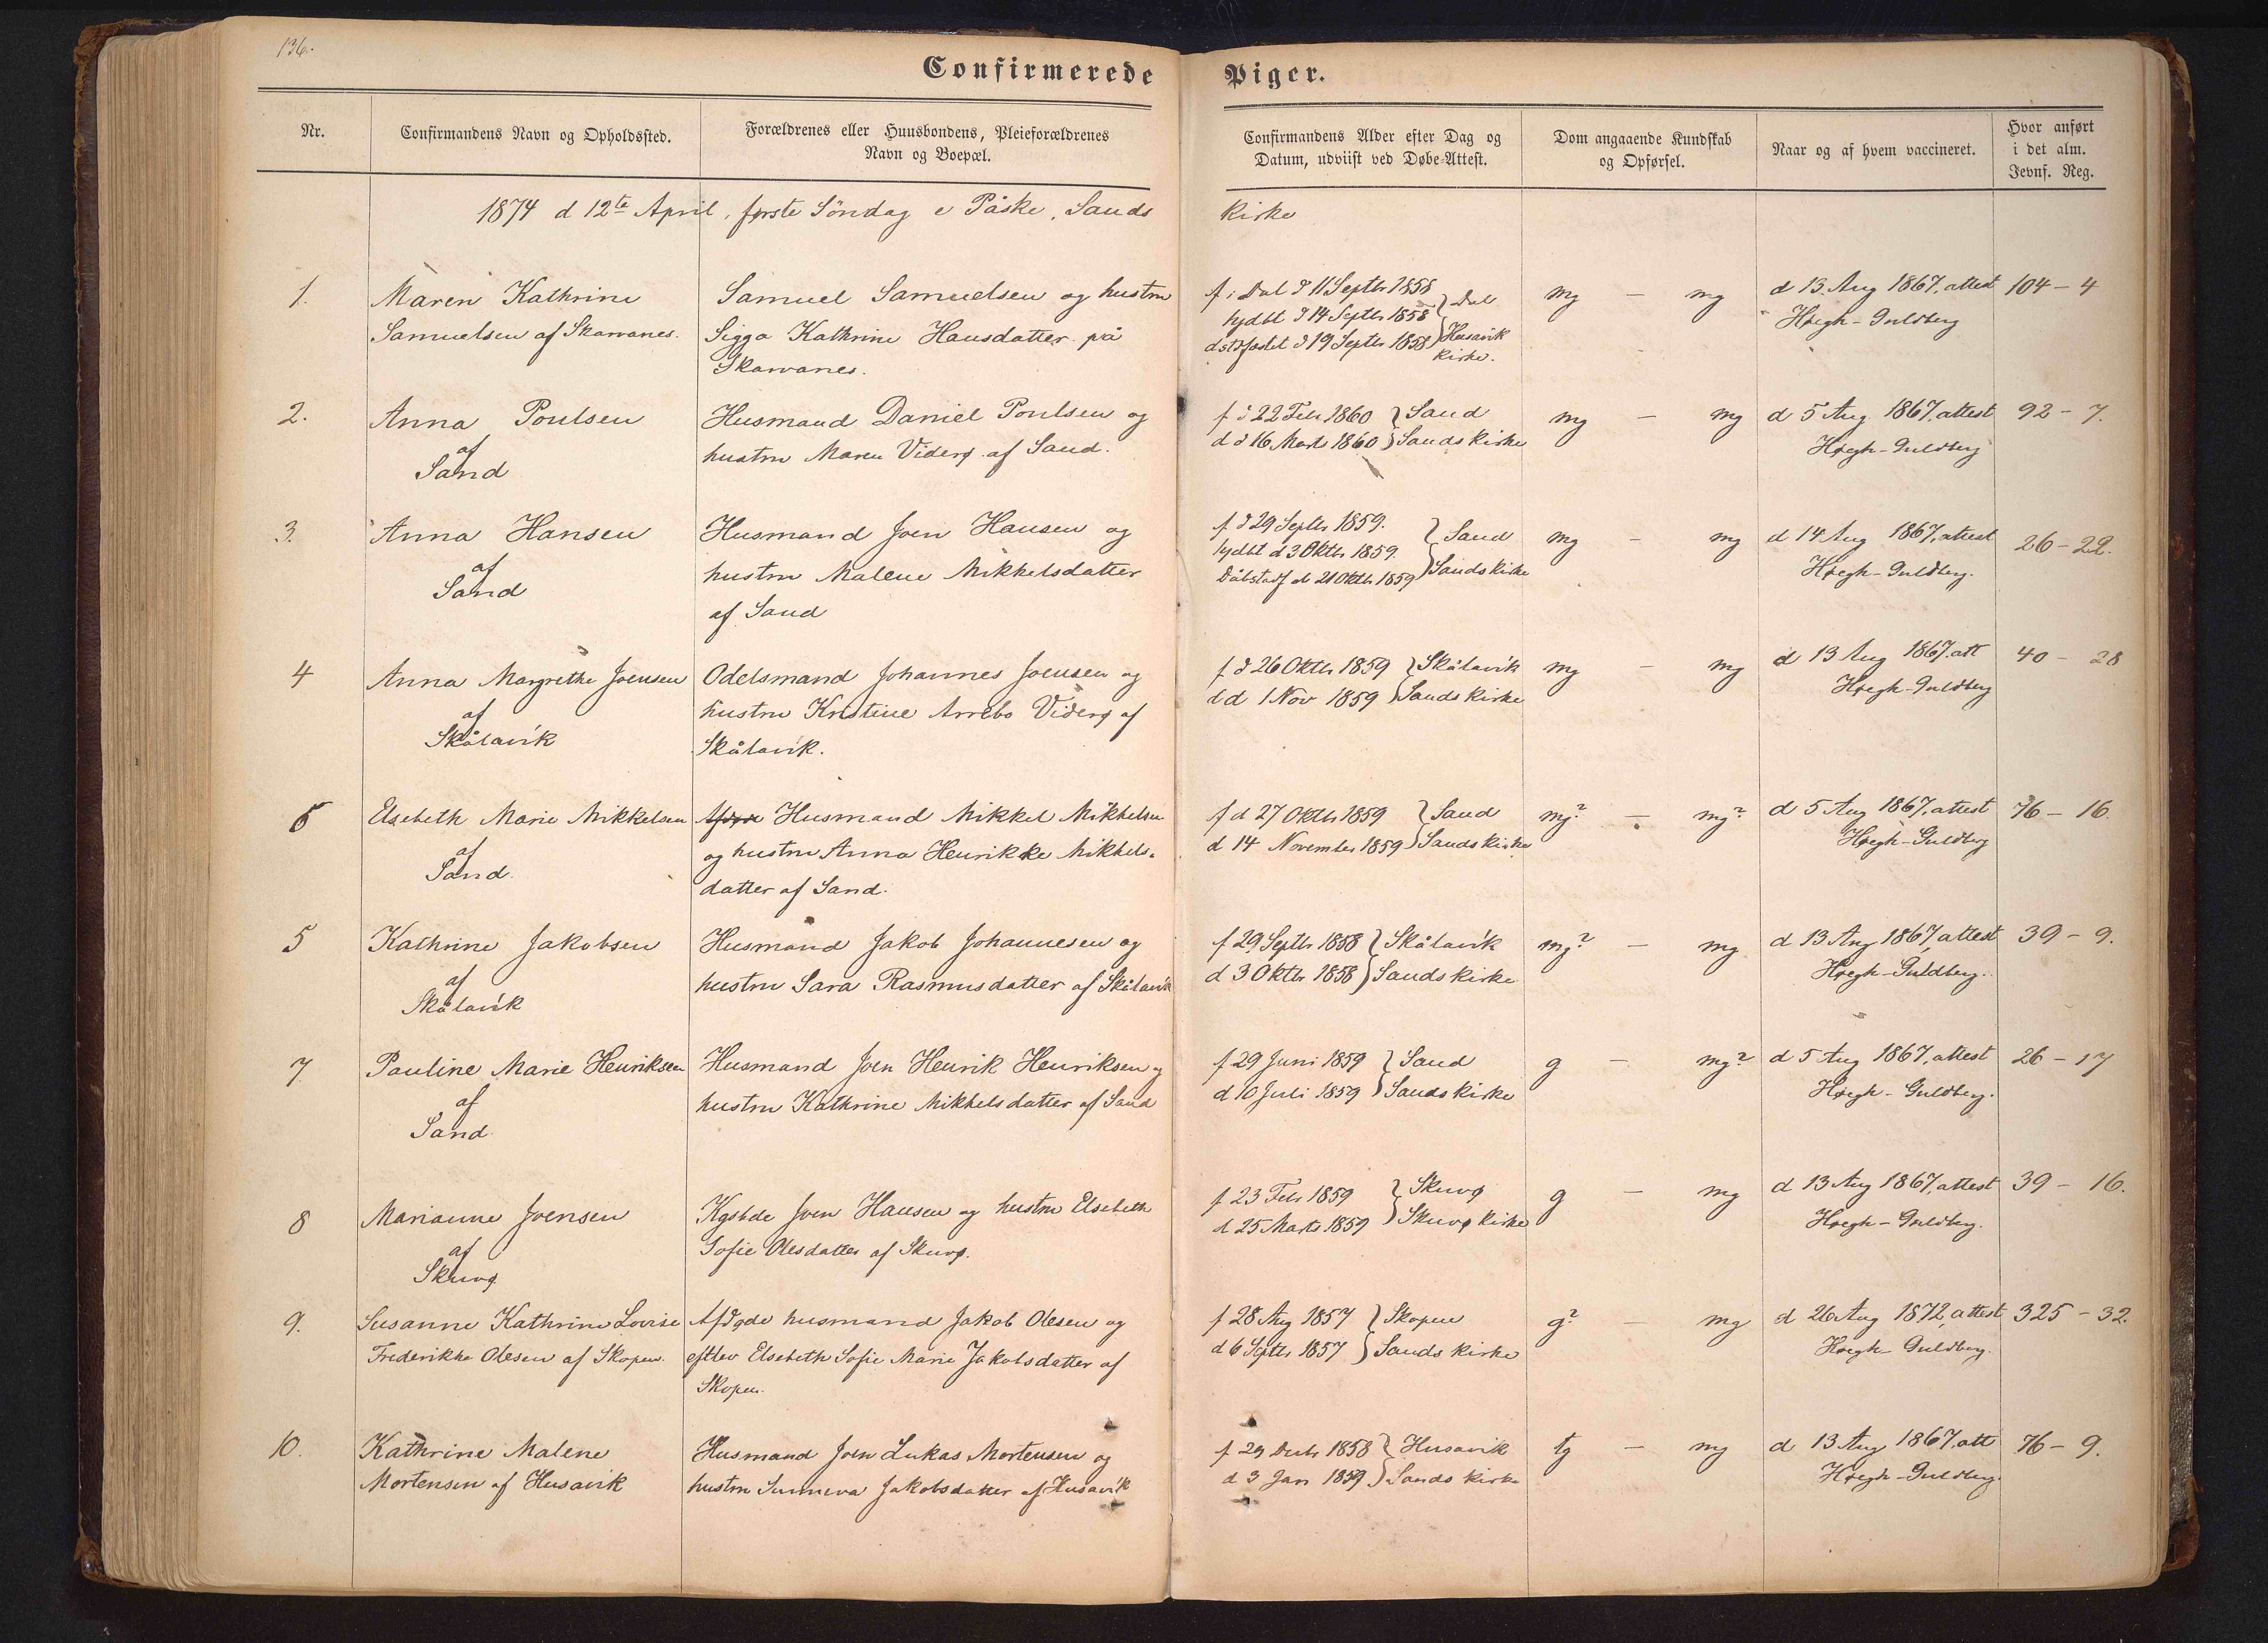 136.
Confirmerede Piger.
Nr.
Confirmandens Navn og Opholdssted.
Forældrenes eller Huusbondens, Pleieforældrenes
Navn og Boepæl.
Confirmandens Alder efter Dag og
Datum, udviist ved Døbe-Attest.
Dom angaaende Kundskab
og Opførsel.
Naar og af hvem vaccineret.
Hvor anført
i det alm.
Jevnf. Reg.
1874 d 12te April, første Söndag e Påske, Sands Kirke
1.
Maren Kathrine
Samuelsen af Skarvanes.
Samuel Samuelsen og hustru
Sigga Kathrine Hansdatter på
Skarvanes.
f i Dal d 11 Septbr 1858
hjdbt d 14 Septbr 1858
dstdfæstet d 19 Septbr 1858
Dal
Husavik
Kirke.
mg — mg
d 13. Aug 1867, attest
Høegh-Guldberg
104 - 4
2.
Anna Poulsen
af
Sand
Husmand Daniel Poulsen og
hustru Maren Viderø af Sand.
f d 22 Febr 1860 Sand
d d 16 Marts 1860 Sands Kirke
mg — mg
d 5 Aug 1867, attest
Høegh-Guldberg
92 - 7.
3.
Anna Hansen
af
Sand
Husmand Joen Hansen og
hustru Malene Mikkelsdatter
af Sand
f. d 29 Septbr 1859.
hjdbt d 3 Oktbr 1859.
Dåbstadf d 21 Oktbr 1859
Sand
Sands Kirke
mg — mg
d 14 Aug 1867, attest
Høegh-Guldberg.
26 - 22.
4
Anna Margrethe Joensen
af
Skålavík
Odelsmand Johannes Joensen og
hustru Kristine Arrebo Viderø af
Skålavík.
f d 26 Oktbr 1859 Skålavík
d d 1 Nov 1859 Sands Kirke
mg — mg
d 13 Aug 1867, att
Høegh-Guldberg
40 - 28
6
Elsebeth Marie Mikkelsen
af
Sand.
Husmand Mikkel Mikkelsen
og hustru Anna Henrikke Mikkels-
datter af Sand.
f d 27 Oktbr 1859 Sand
d 14 November 1859 Sands Kirke
mg? — mg?
d 5 Aug 1867, attest
Høegh-Guldberg
76 - 16.
5
Kathrine Jakobsen
af
Skålavík
Husmand Jakob Johannesen og
hustru Sara Rasmusdatter af Skålavík
f 29 Septbr 1858 Skålavík
d 3 Oktbr 1858 Sands Kirke
mg? — mg
d 13 Aug 1867, attest
Høegh-Guldberg.
39 - 9.
7.
Pauline Marie Henriksen
af
Sand
Husmand Joen Henrik Henriksen og
hustru Kathrine Mikkelsdatter af Sand
f 29 Juni 1859 Sand
d 10 Juli 1859 Sands Kirke
g — mg?
d 5 Aug 1867, attest
Høegh-Guldberg.
26 - 17
8
Marianne Joensen
af
Skuvø
Kgsbde Joen Hansen og hustru Elsebeth
Sofie Olesdatter af Skuvø.
f 23 Febr 1859 Skuvø
d 25 Marts 1859 Skuvø Kirke
g — mg
d 13 Aug 1867, attest
Høegh-Guldberg.
39 - 16.
9.
Susanne Kathrine Lovise
Frederikke Olesen af Skopen.
Afdøde husmand Jakob Olesen og
eftlev Elsebeth Sofie Marie Jakobsdatter af
Skopen.
f 28 Aug 1857 Skopen
d 6 Septbr 1857 Sands Kirke
g? — mg
d 26 Aug 1872, attest
Høegh-Guldberg.
325 - 32.
10.
Kathrine Malene
Mortensen af Husavík
Husmand Joen Lukas Mortensen og
hustru Sunneva Jakobsdatter af Husavík
f 29 Decbr 1858 Husavik
d 3 Jan 1859 Sands Kirke
tg — mg
d 13 Aug 1867, att
Høegh-Guldberg.
76 - 9.